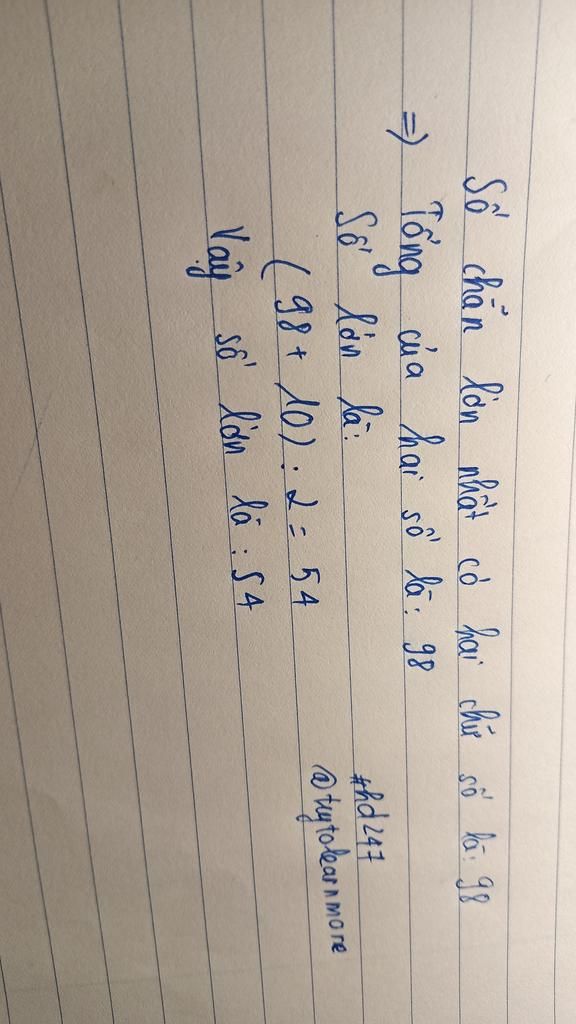 Số chẵn lớn nhất có hai chữ số là: 98
=) Tổng của hai số là: 98
Số lớn là:
(98 + 10) : 2 = 54
Vậy số lớn là : 54
#hd247
@trytolearnmore